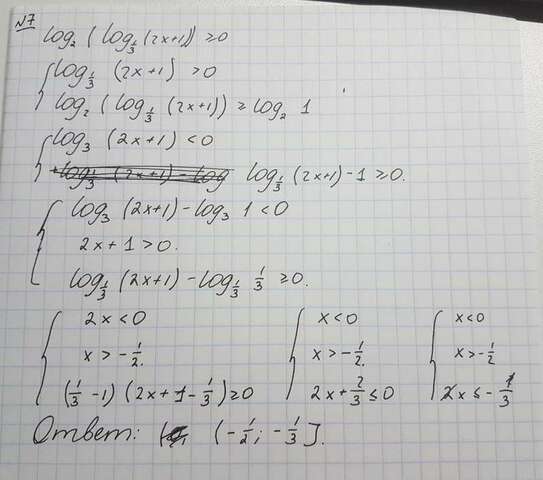 №7
log₂ (log_{1/3} (2x+1)) ≥ 0
{ log_{1/3} (2x+1) > 0
log₂ (log_{1/3} (2x+1)) ≥ log₂ 1
{ log₃ (2x+1) < 0
log_{1/3} (2x+1) - 1 ≥ 0.
{ log₃ (2x+1) - log₃ 1 < 0
2x + 1 > 0.
log_{1/3} (2x+1) - log_{1/3} 1/3 ≥ 0.
{ 2x < 0 { x < 0 { x < 0
x > -1/2. x > -1/2. x > -1/2
(1/3 - 1) (2x + 1 - 1/3) ≥ 0 2x + 2/3 ≤ 0 x ≤ -1/3
Ответ: (-1/2; -1/3].